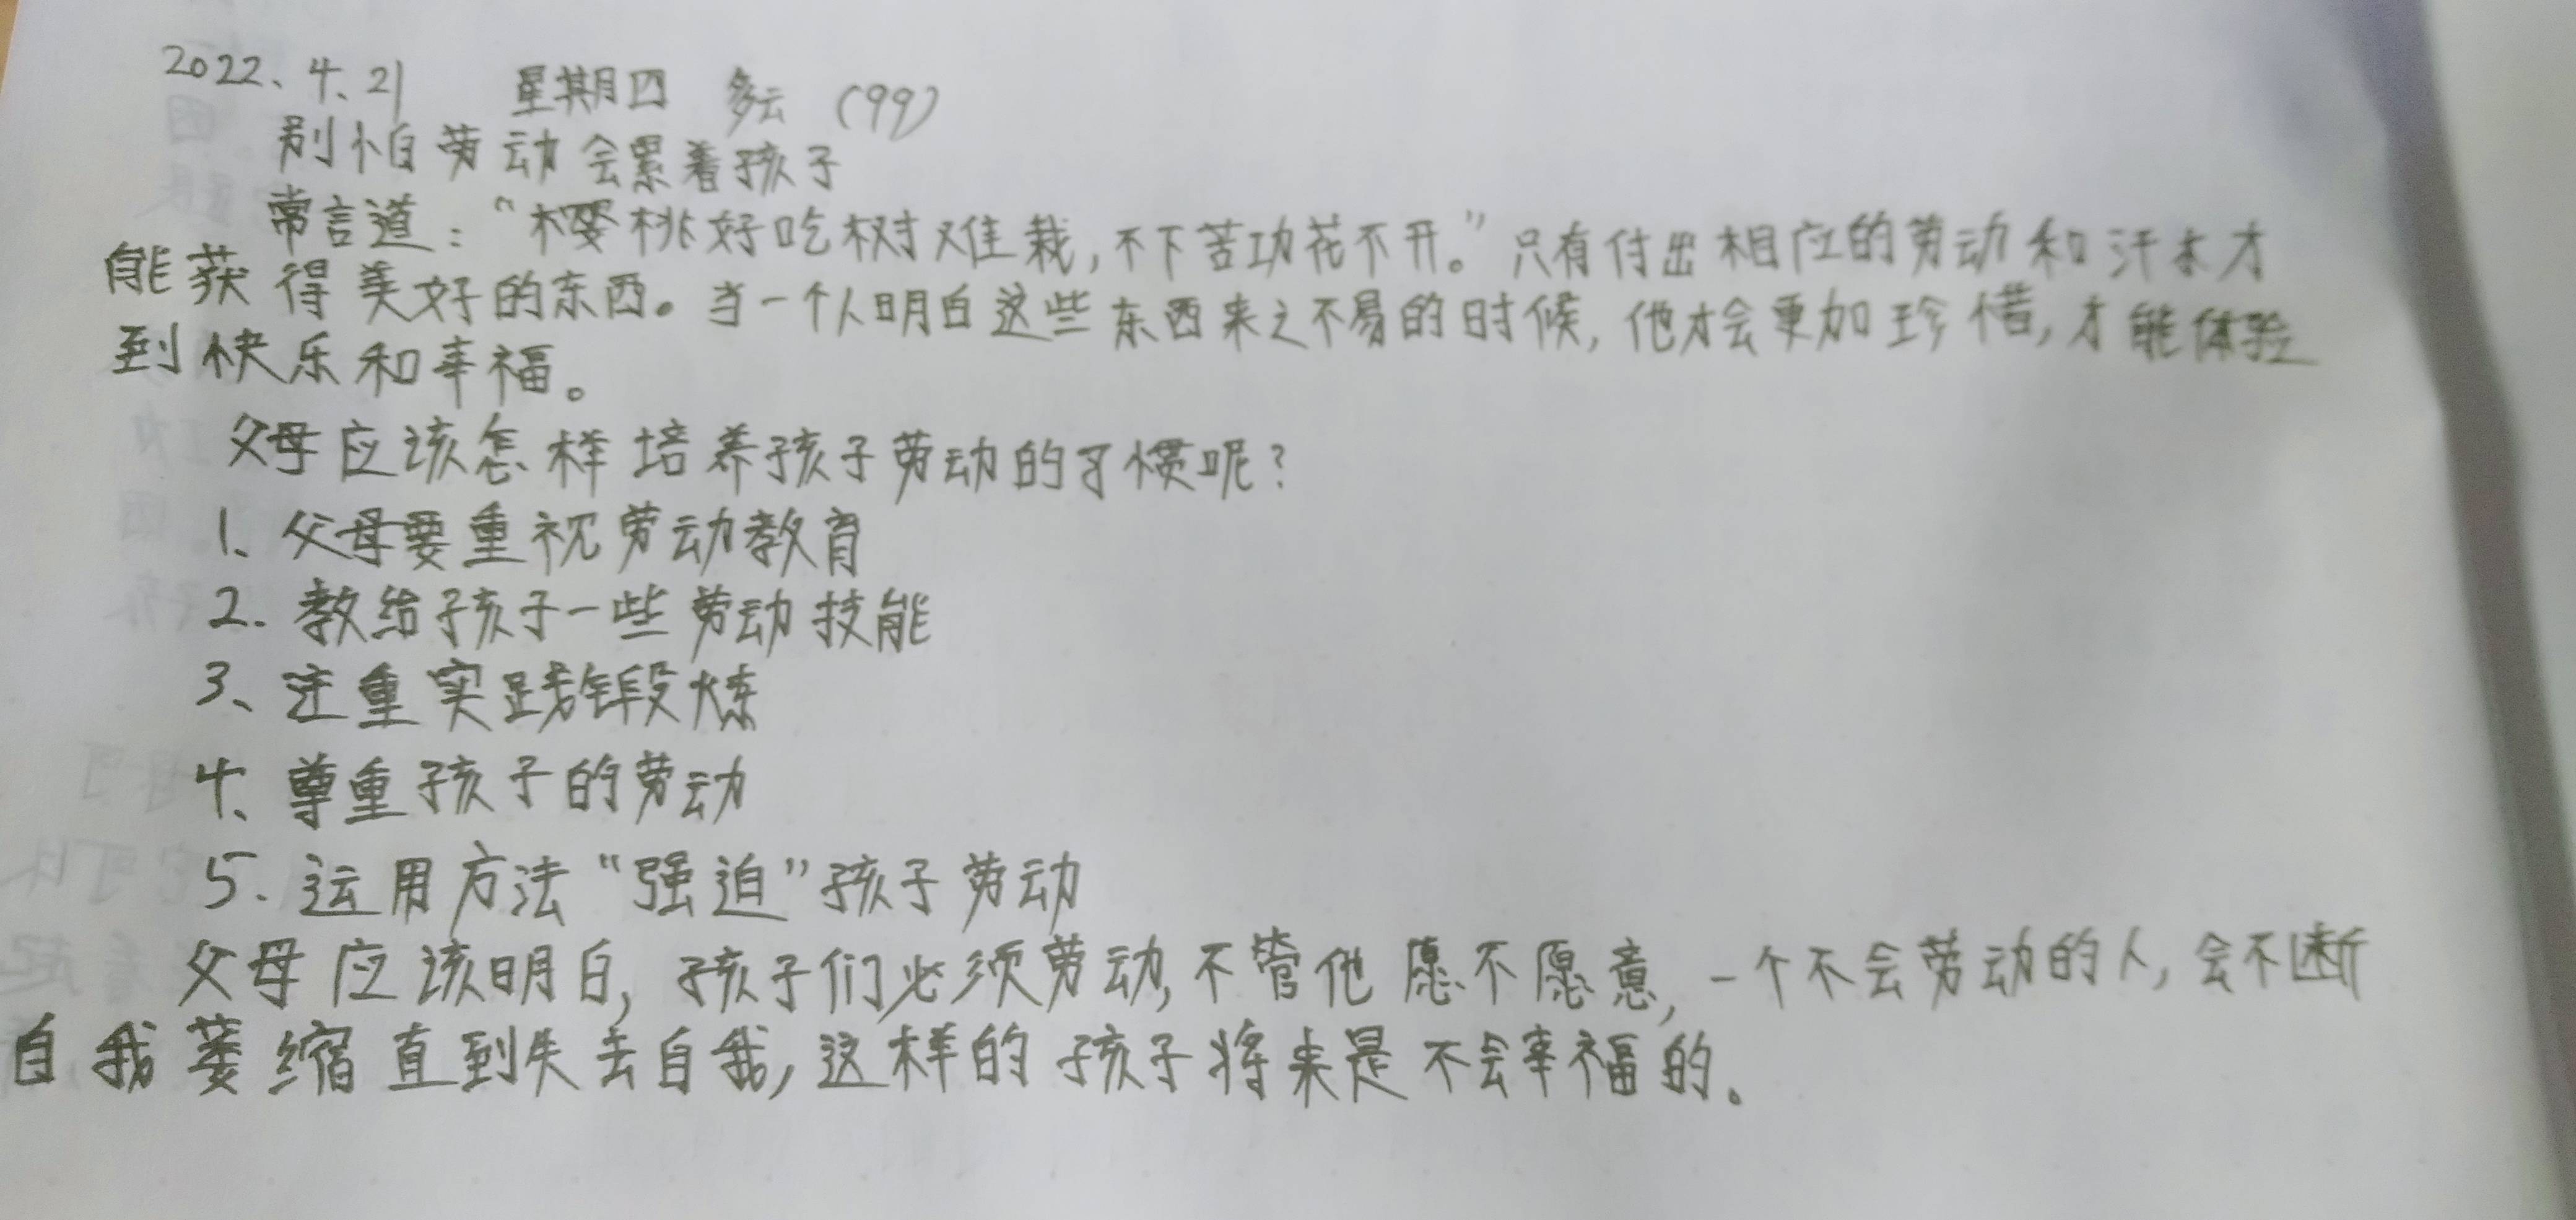 2022、4、21 星期四 多云 (99)
别怕劳动会累着孩子
常言道：“樱桃好吃树难栽，不下苦功花不开。”只有付出相应的劳动和汗水才
能获得美好的东西。当一个人明白这些东西来之不易的时候，他才会更加珍惜，才能体验
到快乐和幸福。
父母应该怎样培养孩子劳动的习惯呢？
1、父母要重视劳动教育
2. 教给孩子一些劳动技能
3、注重实践锻炼
4、尊重孩子的劳动
5. 运用方法“强迫”孩子劳动
父母应该明白，孩子们必须劳动，不管他愿不愿意，一个不会劳动的人，会不断
自我萎缩直到失去自我，这样的孩子将来是不会幸福的。